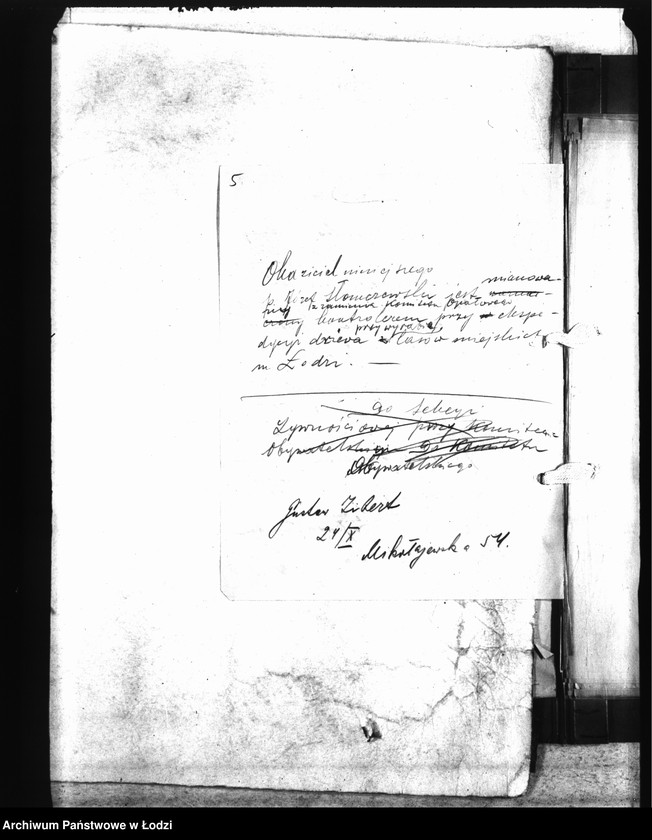 5
Okaziciel niniejszego
p. Józef Słomczewski jest mianowa-
przez ramienia Komitetu Opałowego
kontrolerem przy ekspe-
dycyi drzewa przy wyrębie lasów miejskich
m. Łodzi. —
Do Sekcyi
Żywnościowej przy Komitecie
Obywatelskim Do Komitetu
Obywatelskiego
Gustav Zibert
24/X
Mikołajewska 54.
Archiwum Państwowe w Łodzi